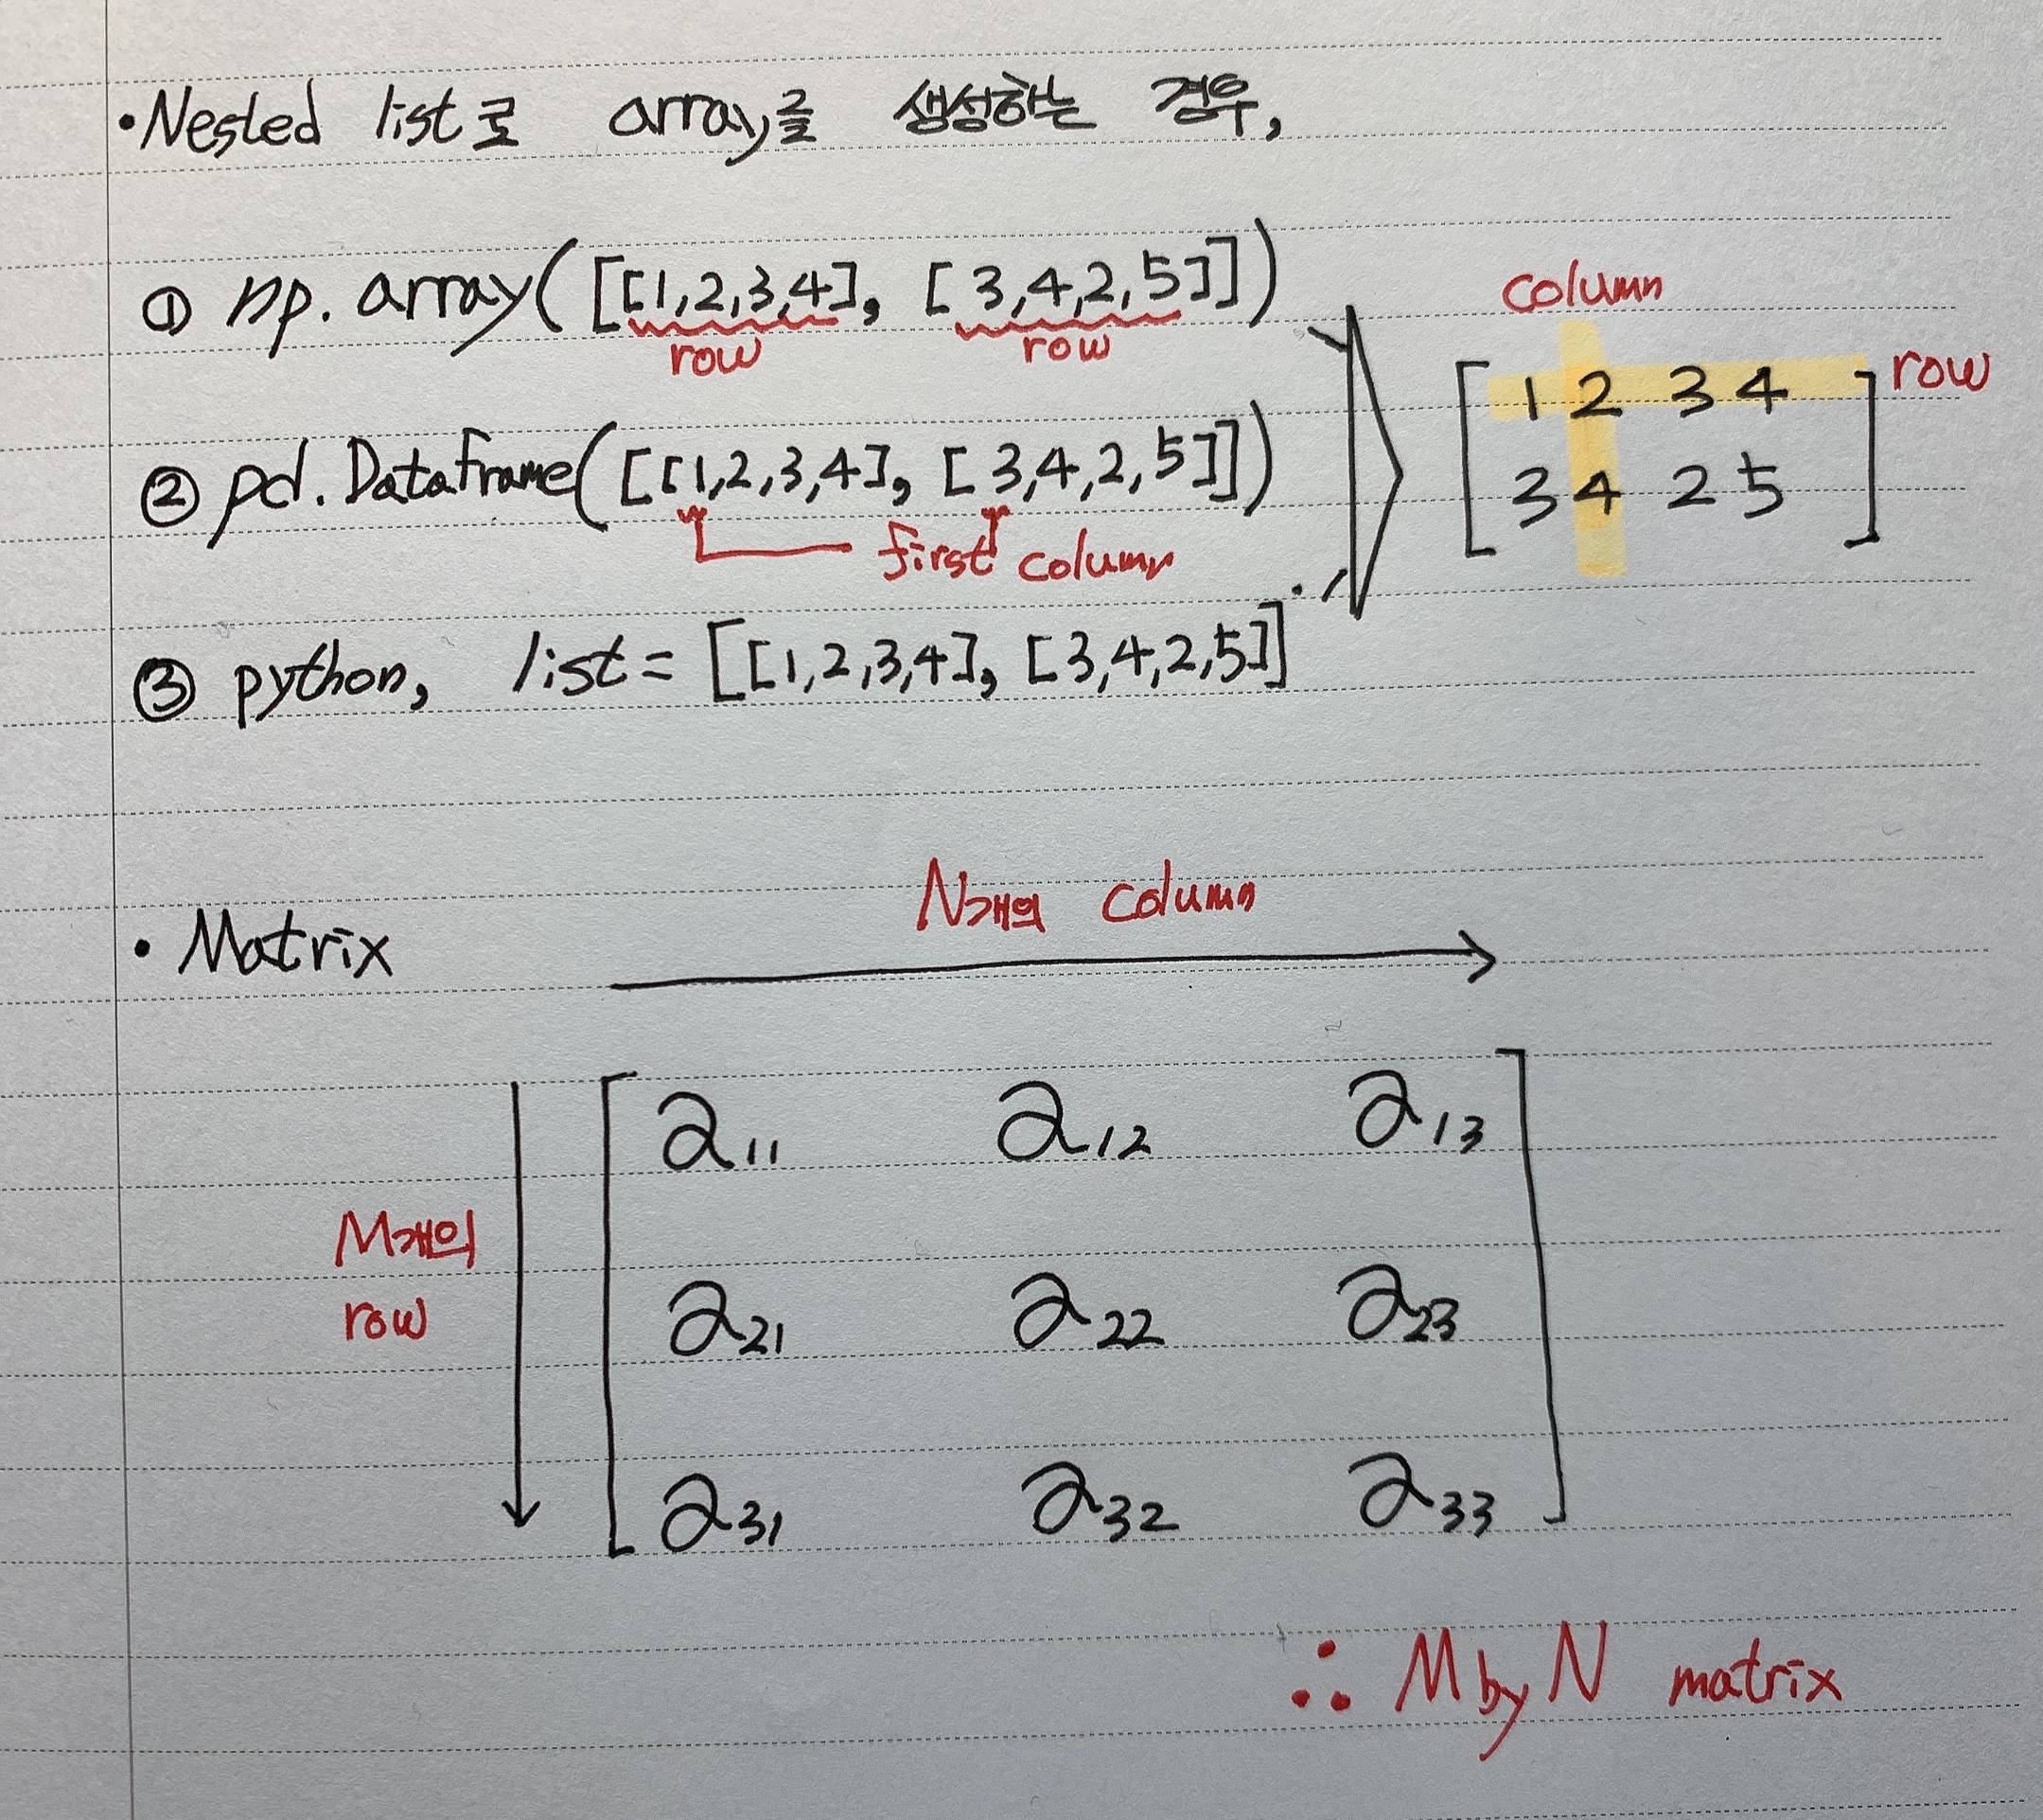 •Nested list로 array를 생성하는 경우,
① np.array([[1,2,3,4], [3,4,2,5]])
row row
② pd.DataFrame([[1,2,3,4], [3,4,2,5]])
first column
③ python, list = [[1,2,3,4], [3,4,2,5]]
column
1 2 3 4 row
3 4 2 5
• Matrix
N개의 column
M개의
row
a11 a12 a13
a21 a22 a23
a31 a32 a33
∴ M by N matrix